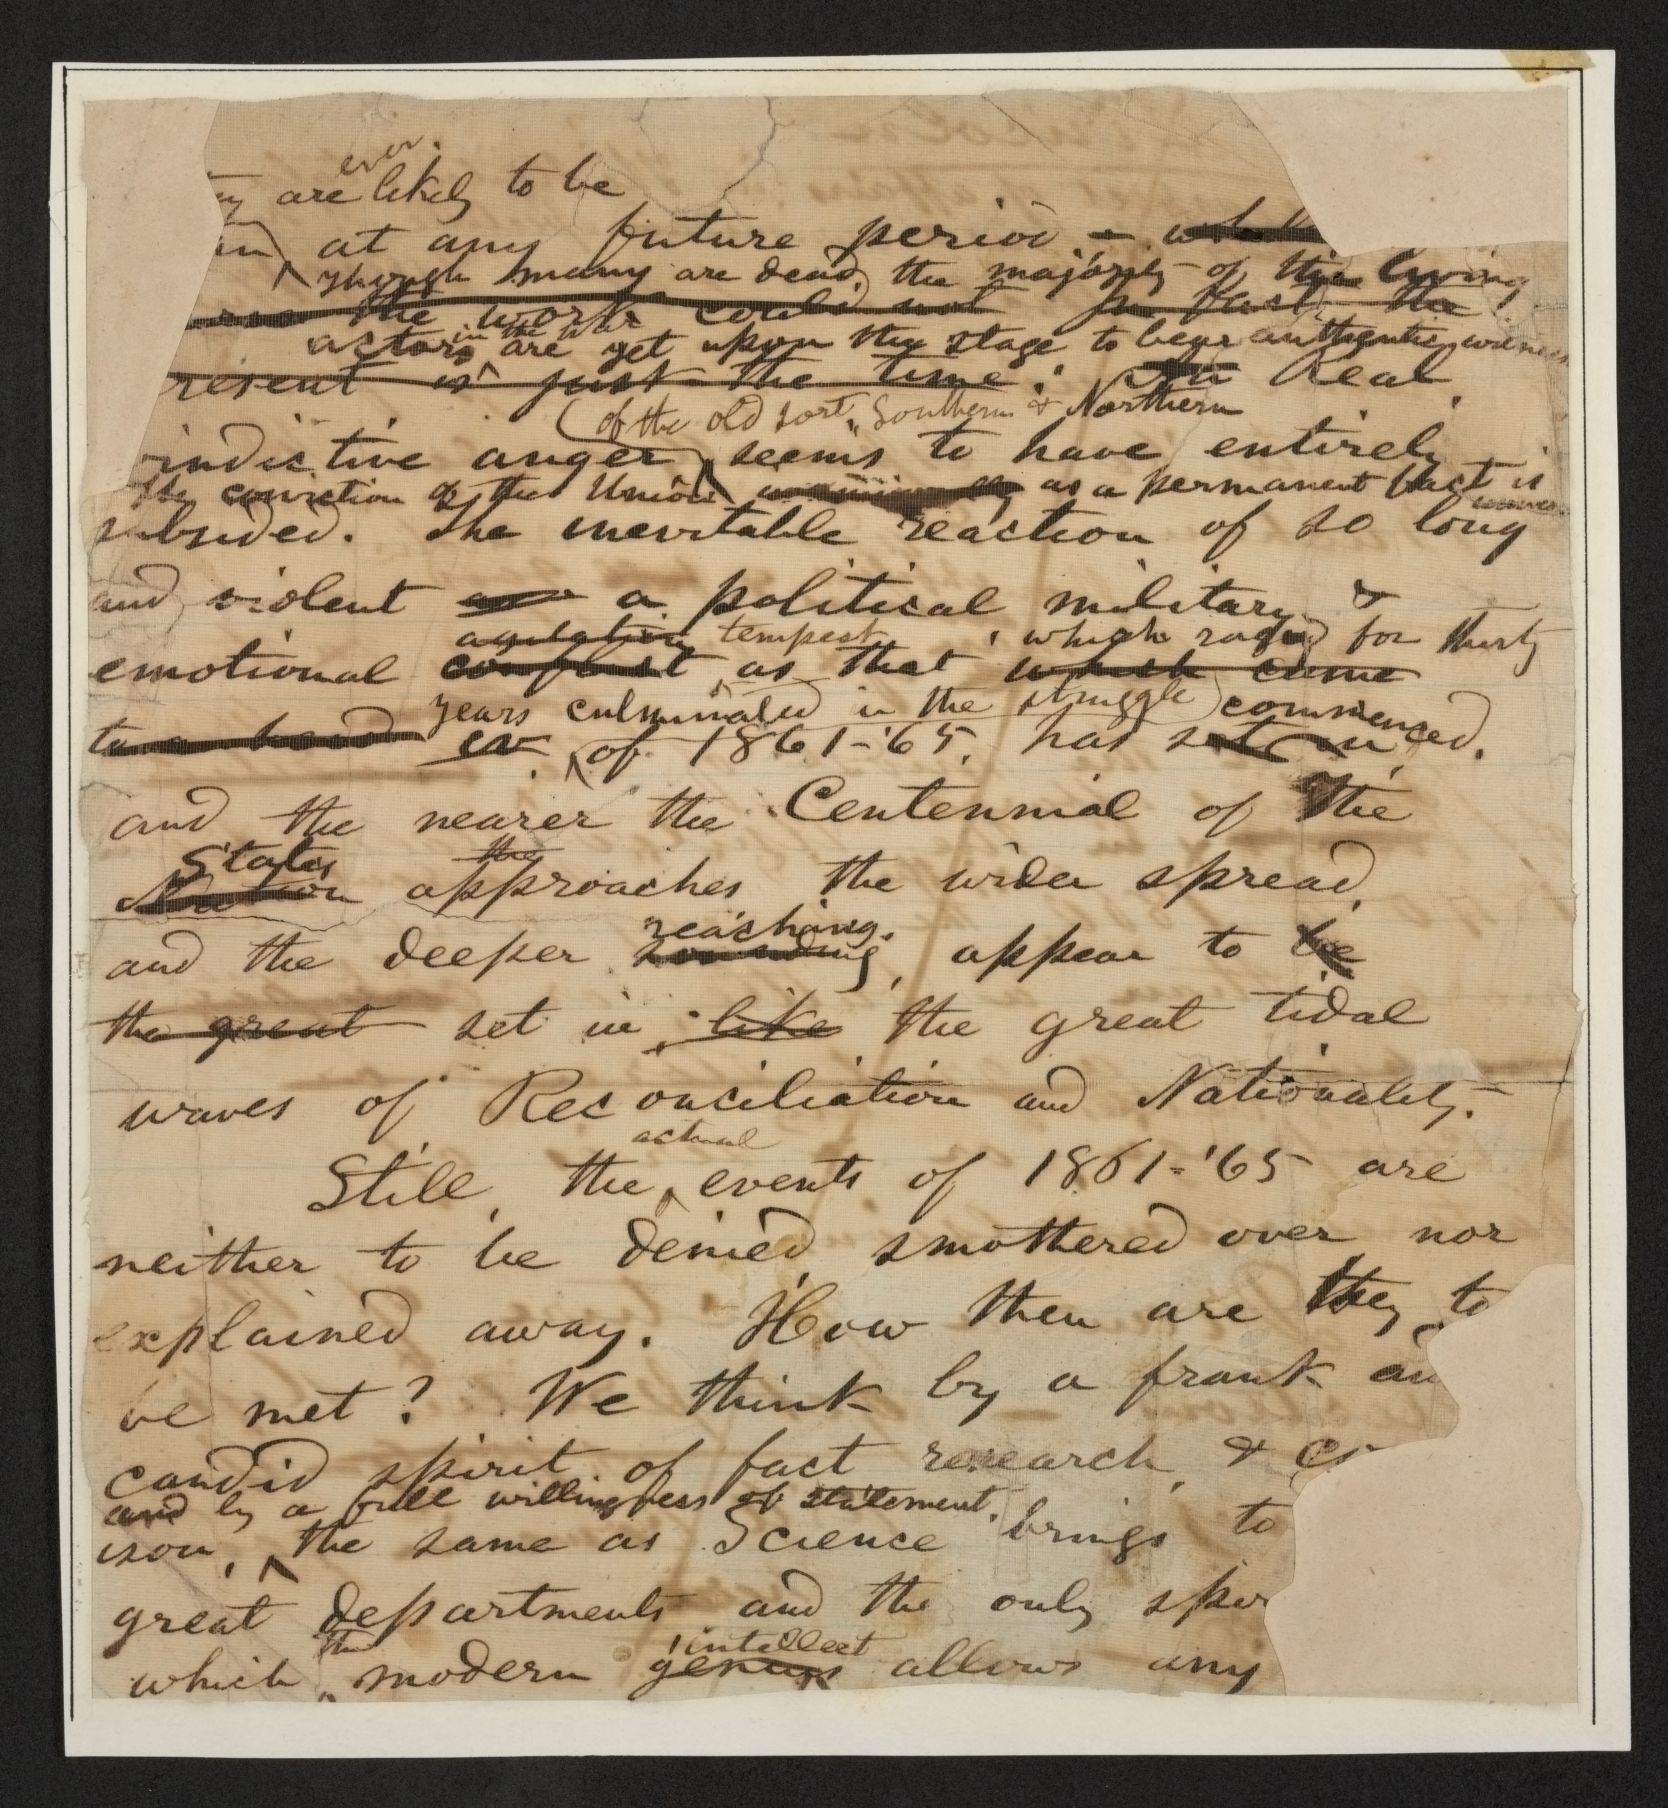 ever.
are likely to be
at any future period –
though many are dead, the majority of the living
the work could not in fact the
actors in the war are yet upon the stage to bear authentic witness
resent is just the time. Real
(of the old sort, Southern & Northern
vindictive anger seems to have entirely
the conviction of the Union as a permanent fact is
subsided. The inevitable reaction of so long
and violent a political military &
agitation tempest, which raged for thirty
emotional conflict as that which came
years culminated in the struggle commenced.
to a head in of 1861–'65, has set in,
and the nearer the Centennial of the
States the
Nation approaches the wider spread,
reaching,
and the deeper sounding, appear to be
the great set in like the great tidal
waves of Reconciliation and Nationality. –
actual
Still, the events of 1861–'65 are
neither to be denied, smothered over nor
explained away. How then are they to
be met? We think by a frank an
candid spirit of fact research, &
and by a full willingness of statement,
ison, the same as Science brings to
great departments and the only spir
the intellect
which modern genius allows any